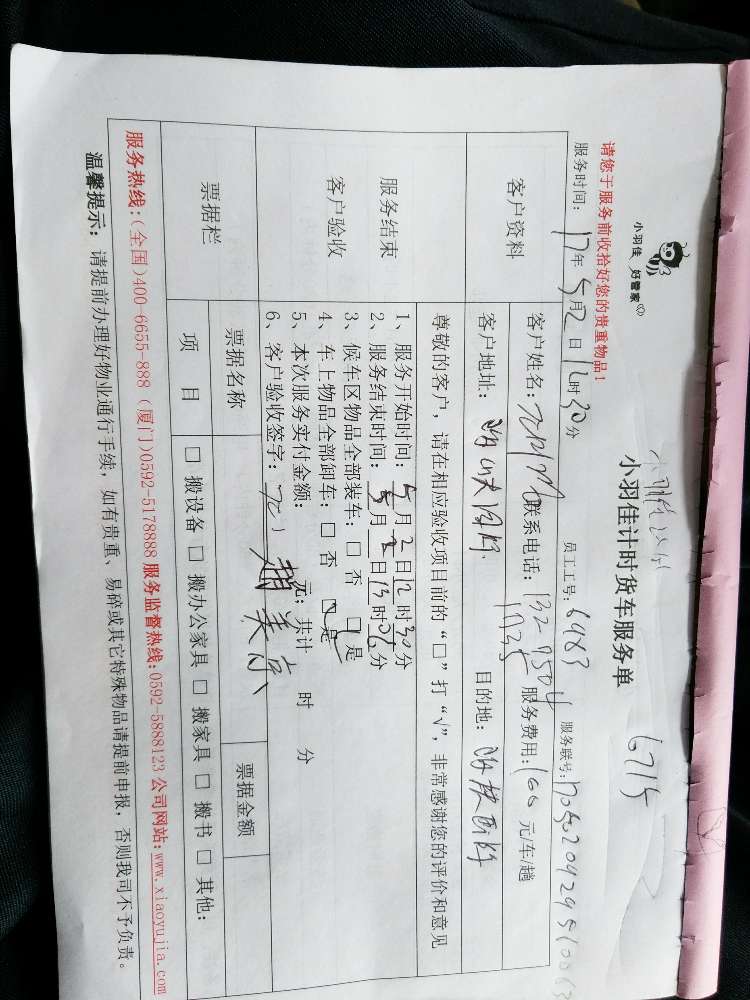 小羽佳 好管家
小羽佳计时货车服务单
6715
请您于服务前收拾好您的贵重物品！
服务时间：17年5月2日12时30分 员工工号：6483 服务联号：
客户资料
客户姓名： 联系电话：132 9504 服务费用：100元/车/趟
客户地址： 目的地：
服务结束
客户验收
尊敬的客户，请在相应验收项目前的“□”打“√”，非常感谢您的评价和意见
1、服务开始时间：5月2日12时30分
2、服务结束时间：5月2日13时06分
3、候车区物品全部装车：□ 否 □ 是
4、车上物品全部卸车：□ 否 □ 是
5、本次服务实付金额： 元；共计 时 分
6、客户验收签字：
票据栏
票据名称 票据金额
项 目
□ 搬设备 □ 搬办公家具 □ 搬家具 □ 搬书 □ 其他：
服务热线：(全国)400-6655-888 (厦门)0592-5178888 服务监督热线:0592-5888123 公司网站:www.xiaoyujia.com
温馨提示：请提前办理好物业通行手续，如有贵重、易碎或其它特殊物品请提前申报，否则我司不予负责。